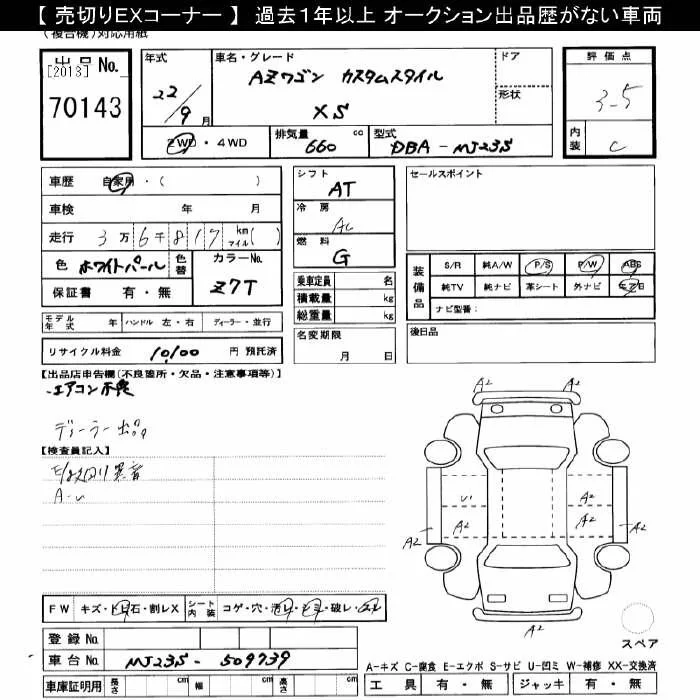 【 売切りEXコーナー 】 過去１年以上 オークション出品歴がない車両
(複合機)対応用紙
出品 No.
[2013]
70143
年式
22/9月
車名・グレード
AZワゴン カスタムスタイル
XS
ドア
形状
評価点
3-5
内装
C
2WD・4WD
排気量 660 cc
型式 DBA-MJ23S
車歴 自家用・( )
車検 年 月
走行 3万6千817 km マイル( )
色 ホワイトパール 色替
カラーNo. Z7T
保証書 有・無
モデル年式 年 ハンドル 左・右 ディーラー・並行
リサイクル料金 10,100 円 預託済
シフト
AT
冷房
AC
燃料
G
乗車定員 名
積載量 kg
総重量 kg
名変期限
月 日
セールスポイント
装備品
S/R 純A/W P/S P/W ABS
純TV 純ナビ 革シート 外ナビ
ナビ型番：
後日品
【出品店申告欄(不良箇所・欠品・注意事項等)】
エアコン不良
ディーラー出品
【検査員記入】
異音
A-U
FW キズ・トビ石・割レX シート内装 コゲ・穴・汚レ・シミ・破レ・スレ
登録 No.
車台 No. MJ23S-509739
車庫証明用 長さ cm 幅 cm 高さ cm
A2
A2
A2
U1
A2
A2
A2
A2
A2
A2
スペア
A-キズ C-腐食 E-エクボ S-サビ U-凹ミ W-補修 XX-交換済
工具 有・無 ジャッキ 有・無